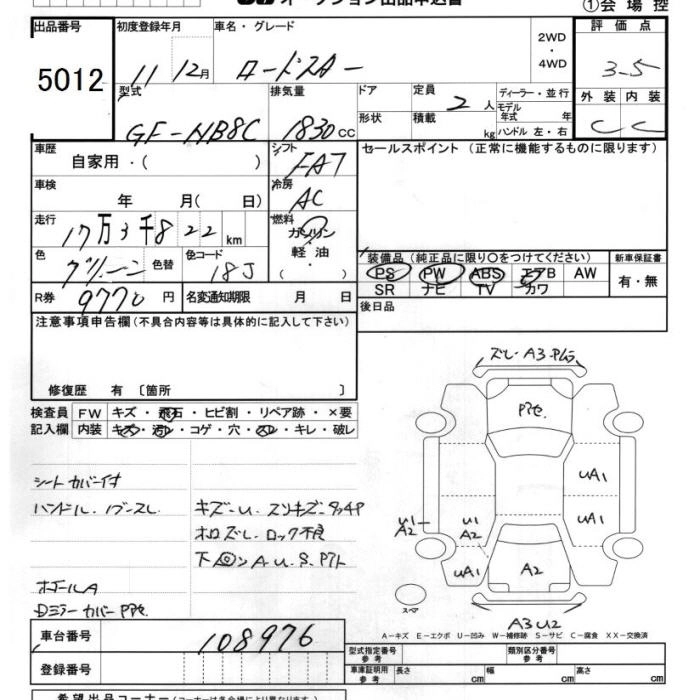 ①会場控
出品番号
5012
初度登録年月
11 12月
車名・グレード
ロードスター
2WD
・
4WD
評価点
3-5
外装 内装
C C
型式
GF-NB8C
排気量
1830 CC
ドア
形状
定員 2 人
積載 kg
ディーラー・並行
モデル年式 年
ハンドル 左・右
車歴
自家用・( )
シフト
FA7
セールスポイント (正常に機能するものに限ります)
車検
年 月( 日)
冷房
AC
走行
17万3千822 km
燃料
ガソリン
軽油
( )
色
グリーン
色替
色コード
18J
装備品 (純正品に限り○をつけてください)
PS PW ABS エアB AW
SR ナビ TV カワ
新車保証書
有・無
R券 9770 円
名変通知期限 月 日
後日品
注意事項申告欄 (不具合内容等は具体的に記入して下さい)
修復歴 有 〔箇所 〕
検査員
記入欄
FW キズ・飛石・ヒビ割・リペア跡・×要
内装 キズ・汚レ・コゲ・穴・スレ・キレ・破レ
シートカバー付
ハンドル
キズ-U. スリキズ
ホロズレ. ロック不良
A U. S.
ホイールA
Dミラーカバー
ズレ A3
UA1
UA1
U1
A2
U1
A2
UA1
A2
A3U2
スペア
A-キズ E-エクボ U-凹み W-補修跡 S-サビ C-腐食 XX-交換済
車台番号
108976
登録番号
型式指定番号
参考
類別区分番号
参考
車庫証明用
参考
長さ cm 幅 cm 高さ cm
希望出品コーナー